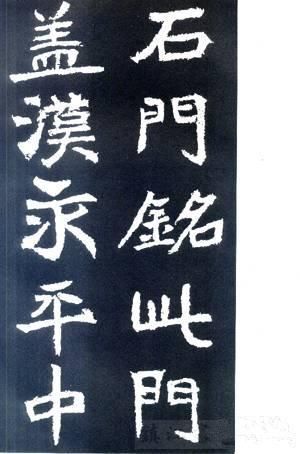 石門銘此門
盖漢永平中